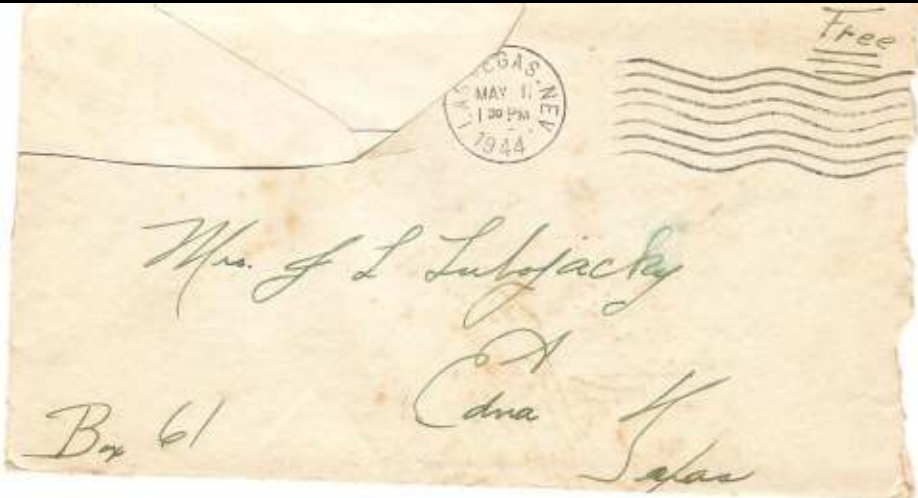 Free
LAS VEGAS, NEV.
MAY 1
1 30 PM
1944
Mrs. J L Lubojacky
Edna
Box 61
Texas